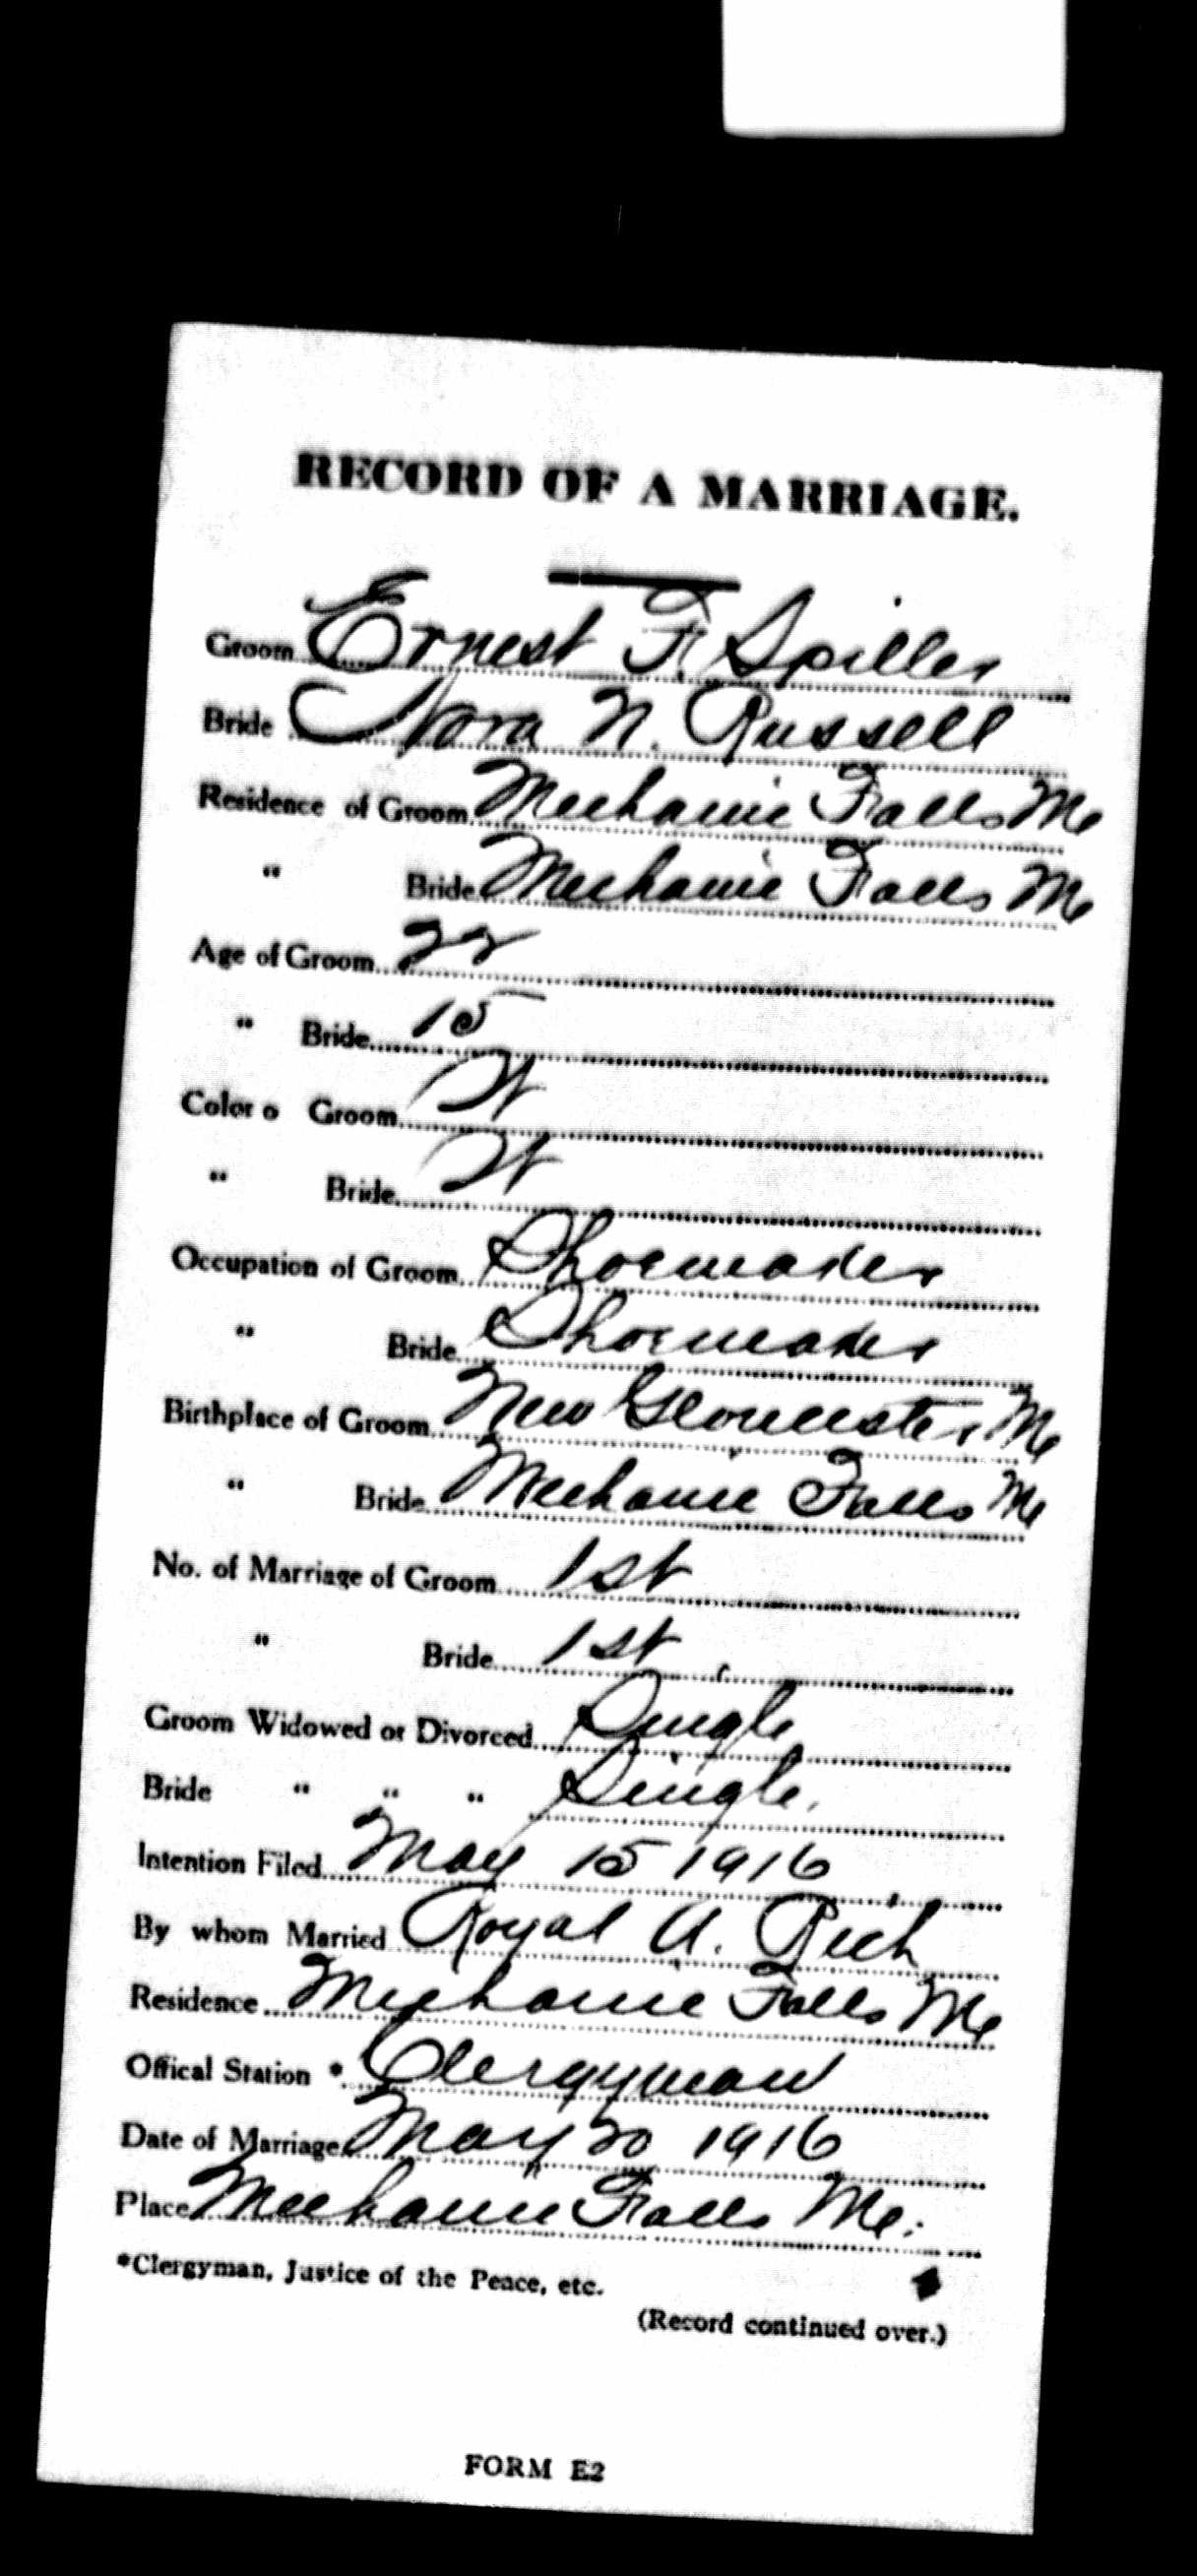 RECORD OF A MARRIAGE.
Groom Ernest F. Spiller
Bride Nora N. Russell
Residence of Groom Mechanic Falls Me
" Bride Mechanic Falls Me
Age of Groom 22
" Bride 15
Color o Groom W
" Bride W
Occupation of Groom Shoemaker
" Bride Shoemaker
Birthplace of Groom New Gloucester Me
" Bride Mechanic Falls Me
No. of Marriage of Groom 1st
" Bride 1st
Groom Widowed or Divorced Single
Bride " " " Single.
Intention Filed May 15 1916
By whom Married Royal A. Rich
Residence Mechanic Falls Me
Offical Station * Clergyman
Date of Marriage May 20 1916
Place Mechanic Falls Me.
*Clergyman, Justice of the Peace, etc.
(Record continued over.)
FORM E2